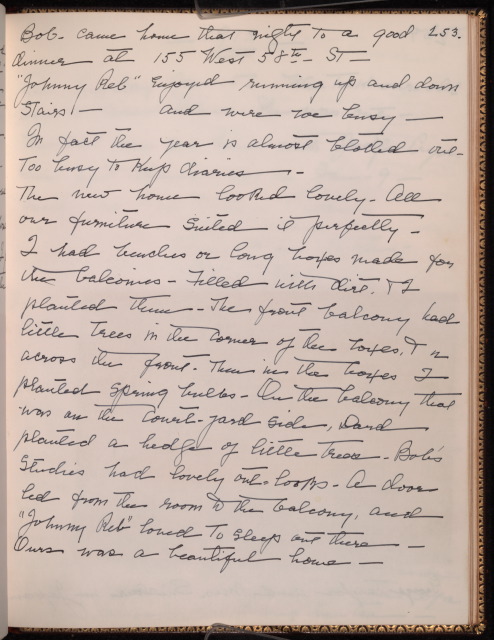 Bob- came home that night to a good 253.
dinner at 155 West 58th- St-
"Johnny Reb" Enjoyed running up and down
Stairs!- and were we busy-
In fact the year is almost blotted out-
Too busy to Keep diaries-
The new home looked lovely- All
our furniture Suited it perfectly-
I had benches or long boxes made for
the balconies- Filled with dirt. + I
planted them- The front balcony had
little trees in the corner of the boxes, +
across the front- Then in the boxes I
planted Spring bulbs- On the balcony that
was on the Court-yard side,
planted a hedge of little trees- Bob's
Studios had lovely out-looks- A door
led from the room to the balcony, and
"Johnny Reb" loved to sleep out there-
Ours was a beautiful home-